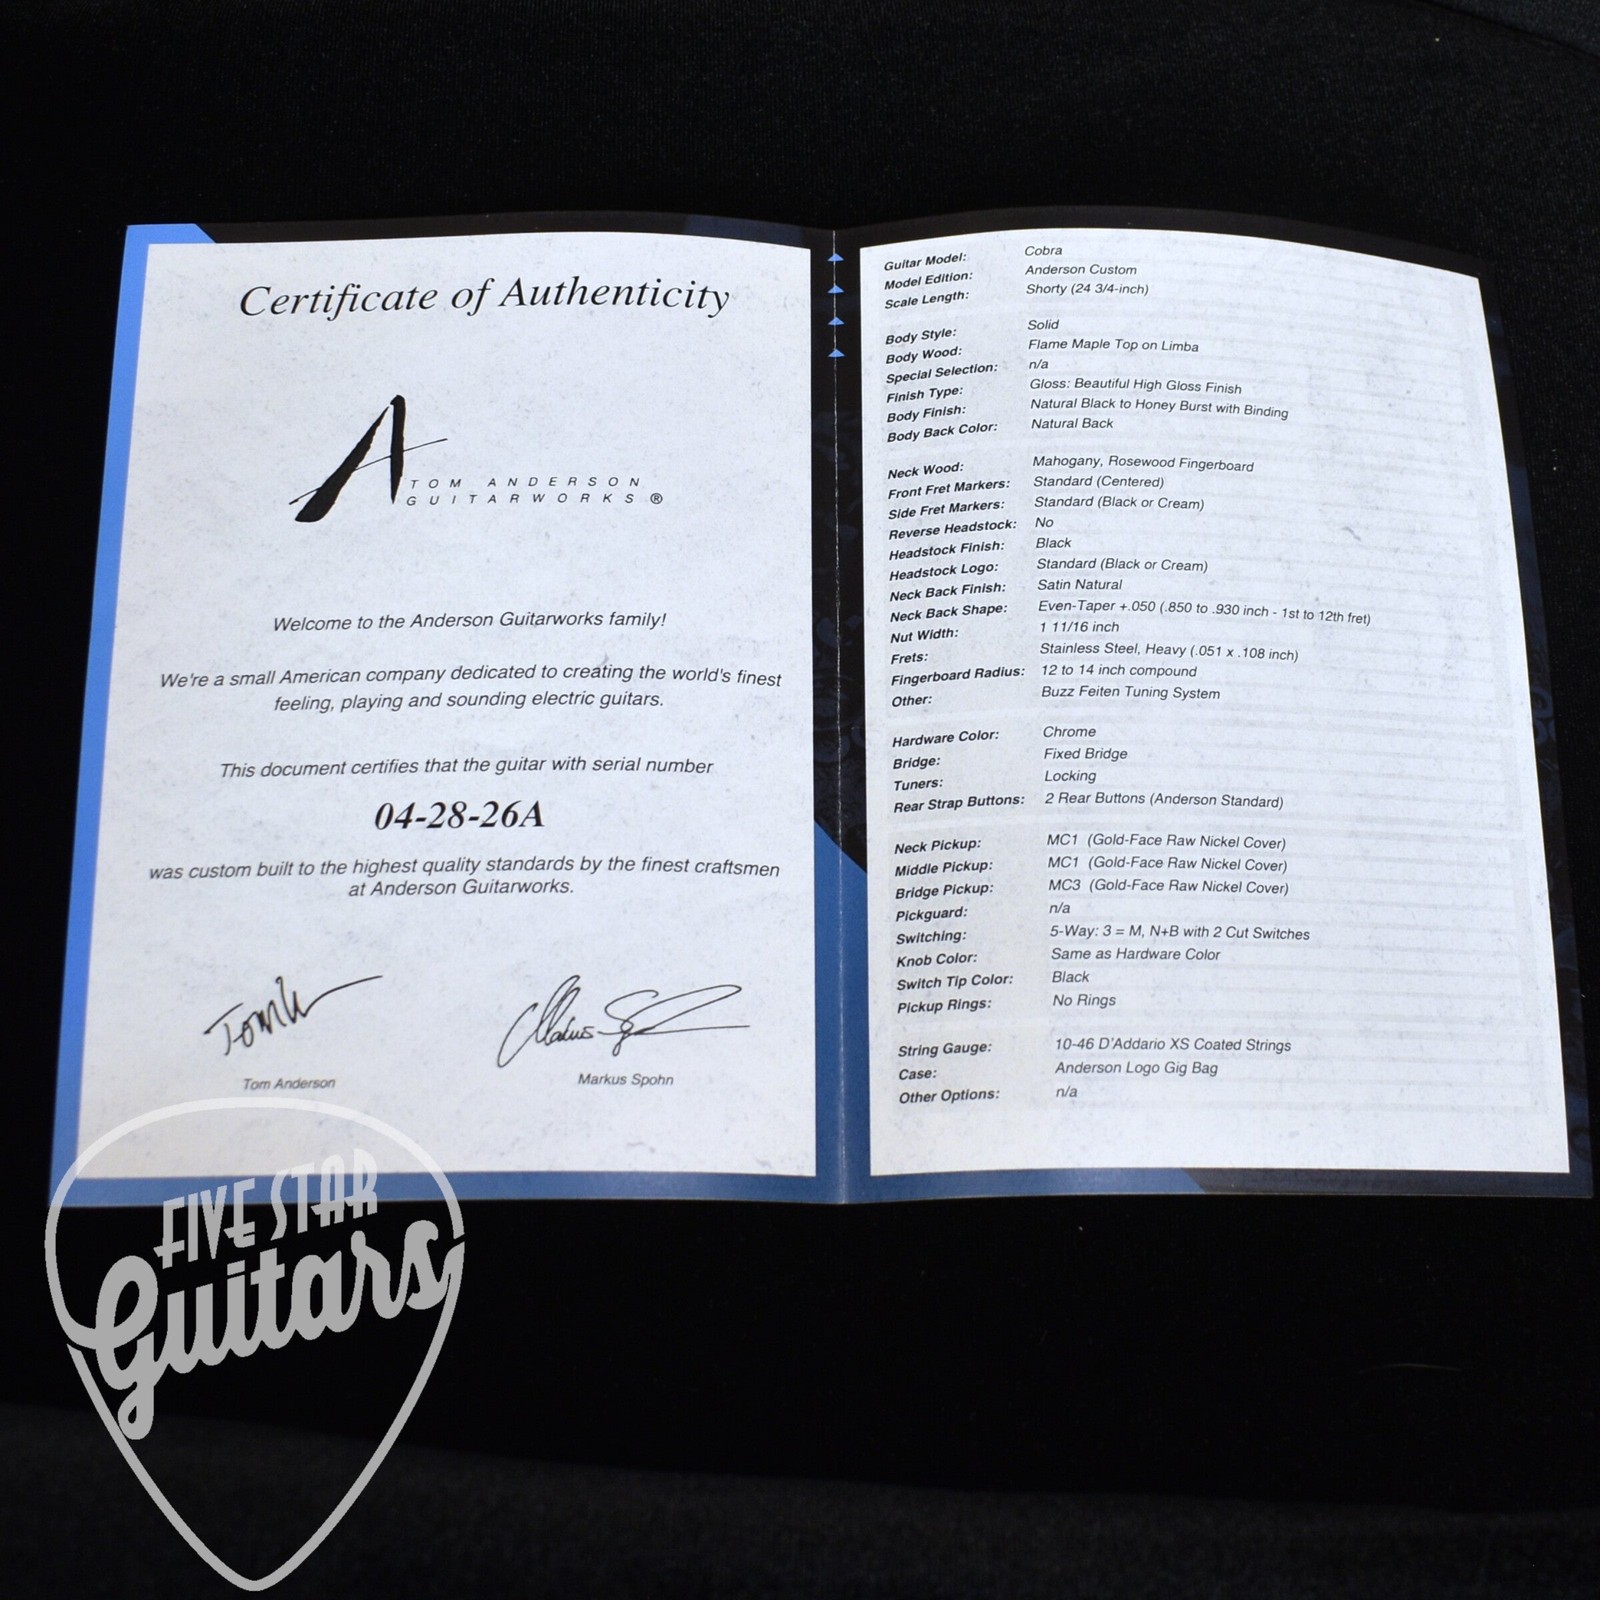 Certificate of Authenticity
TOM ANDERSON
GUITARWORKS®
Welcome to the Anderson Guitarworks family!
We're a small American company dedicated to creating the world's finest
feeling, playing and sounding electric guitars.
This document certifies that the guitar with serial number
04-28-26A
was custom built to the highest quality standards by the finest craftsmen
at Anderson Guitarworks.
Tom Anderson
Markus Spohn
Guitar Model: Cobra
Model Edition: Anderson Custom
Scale Length: Shorty (24 3/4-inch)
Body Style: Solid
Body Wood: Flame Maple Top on Limba
Special Selection: n/a
Finish Type: Gloss: Beautiful High Gloss Finish
Body Finish: Natural Black to Honey Burst with Binding
Body Back Color: Natural Back
Neck Wood: Mahogany, Rosewood Fingerboard
Front Fret Markers: Standard (Centered)
Side Fret Markers: Standard (Black or Cream)
Reverse Headstock: No
Headstock Finish: Black
Headstock Logo: Standard (Black or Cream)
Neck Back Finish: Satin Natural
Neck Back Shape: Even-Taper +.050 (.850 to .930 inch - 1st to 12th fret)
Nut Width: 1 11/16 inch
Frets: Stainless Steel, Heavy (.051 x .108 inch)
Fingerboard Radius: 12 to 14 inch compound
Other: Buzz Feiten Tuning System
Hardware Color: Chrome
Bridge: Fixed Bridge
Tuners: Locking
Rear Strap Buttons: 2 Rear Buttons (Anderson Standard)
Neck Pickup: MC1 (Gold-Face Raw Nickel Cover)
Middle Pickup: MC1 (Gold-Face Raw Nickel Cover)
Bridge Pickup: MC3 (Gold-Face Raw Nickel Cover)
Pickguard: n/a
Switching: 5-Way: 3 = M, N+B with 2 Cut Switches
Knob Color: Same as Hardware Color
Switch Tip Color: Black
Pickup Rings: No Rings
String Gauge: 10-46 D'Addario XS Coated Strings
Case: Anderson Logo Gig Bag
Other Options: n/a
FIVE STAR
Guitars